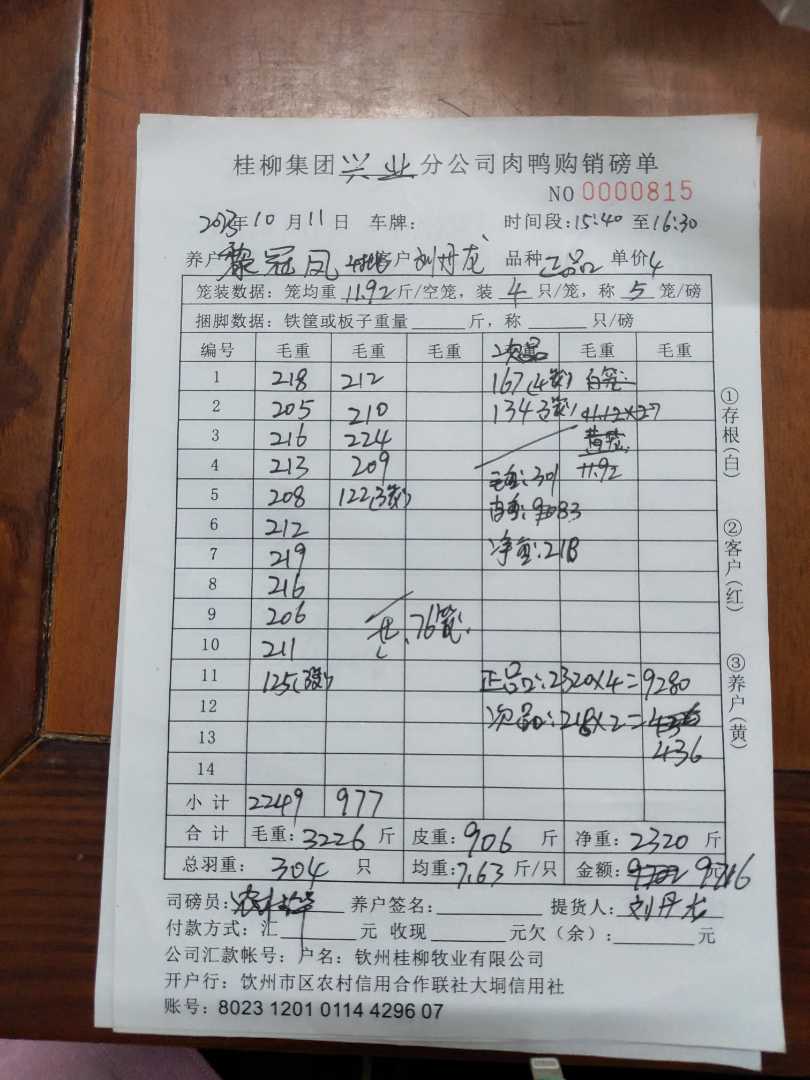 桂柳集团兴业分公司肉鸭购销磅单
NO 0000815
2023年10月11日 车牌: 时间段:15:40至16:30
养户 黎冠凤 客户刘丹龙 品种正品 单价4
笼装数据:笼均重11.92斤/空笼,装4只/笼,称5笼/磅
捆脚数据:铁筐或板子重量______斤,称______只/磅
编号 毛重 毛重 毛重 次品 毛重 毛重
1 218 212 167(4笼) 白笼:
2 205 210 134 3笼) 11.12×27
3 216 224 黄笼
4 213 209 毛重:301 11.92
5 208 122(3笼) 83
6 212
7 219 净重:218
8 216
9 206 76笼
10 211
11 125(3笼) 正品:2320×4=9280
12 次品:218×2=436
13 436
14
小计 2249 977
合计 毛重:3226斤 皮重:906斤 净重:2320斤
总羽重:304只 均重:7.63斤/只 金额:9716
司磅员: 养户签名:________ 提货人:刘丹龙
付款方式:汇______元 收现______元欠(余):______元
公司汇款帐号:户名:钦州桂柳牧业有限公司
开户行:饮州市区农村信用合作联社大垌信用社
账号:8023 1201 0114 4296 07
①存根(白)
②客户(红)
③养户(黄)